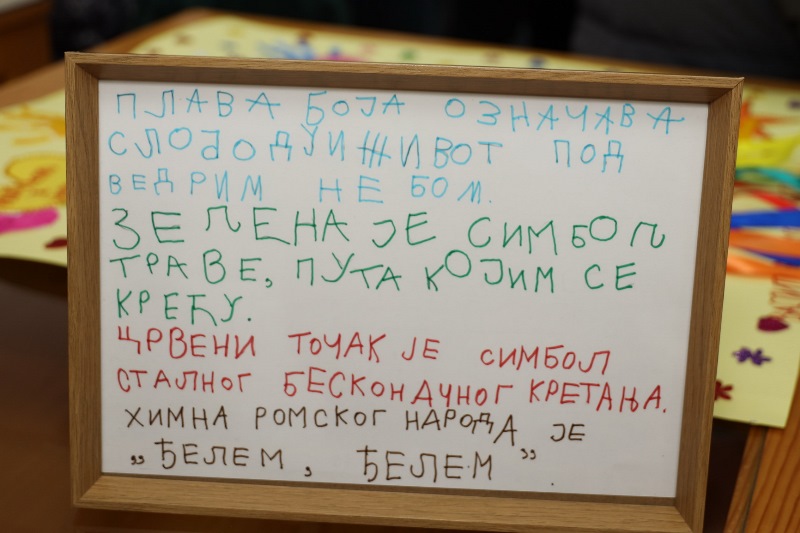 ПЛАВА БОЈА ОЗНАЧАВА
СЛОБОДУ И ЖИВОТ ПОД
ВЕДРИМ НЕБОМ.
ЗЕЛЕНА ЈЕ СИМБОЛ
ТРАВЕ, ПУТА КОЈИМ СЕ
КРЕЋУ.
ЦРВЕНИ ТОЧАК ЈЕ СИМБОЛ
СТАЛНОГ БЕСКОНАЧНОГ КРЕТАЊА.
ХИМНА РОМСКОГ НАРОДА ЈЕ
„ЂЕЛЕМ, ЂЕЛЕМ”.